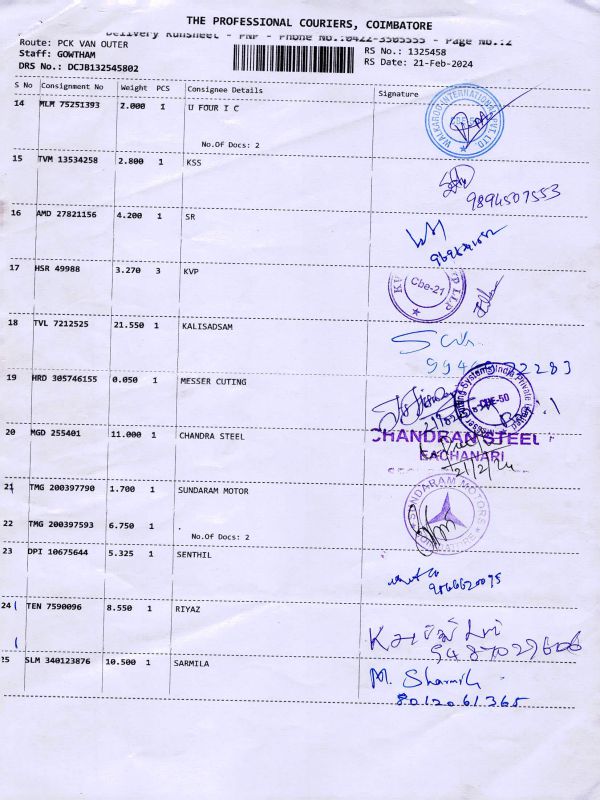 THE PROFESSIONAL COURIERS, COIMBATORE
Delivery Runsheet - PNP - Phone No.:0422-3505555 - Page No.:2
Route: PCK VAN OUTER
Staff: GOWTHAM
DRS No.: DCJB132545802
RS No.: 1325458
RS Date: 21-Feb-2024
S No Consignment No Weight PCS Consignee Details Signature
14 MLM 75251393 2.000 1 U FOUR I C
No.Of Docs: 2
WALKAROO INTERNATIONAL PVT. LTD.
15 TVM 13534258 2.800 1 KSS
9894507553
16 AMD 27821156 4.200 1 SR
17 HSR 49988 3.270 3 KVP
Cbe-21
LLP
18 TVL 7212525 21.550 1 KALISADSAM
19 HRD 305746155 0.050 1 MESSER CUTING
Systems India Private Limited
CBE-50
20 MGD 255401 11.000 1 CHANDRA STEEL
CHANDRAN STEEL
EACHANARI
21/2/24
21 TMG 200397790 1.700 1 SUNDARAM MOTOR
SUNDARAM MOTORS
22 TMG 200397593 6.750 1 .
No.Of Docs: 2
23 DPI 10675644 5.325 1 SENTHIL
24 TEN 7590096 8.550 1 RIYAZ
25 SLM 340123876 10.500 1 SARMILA
M. Sharmila
8012061365